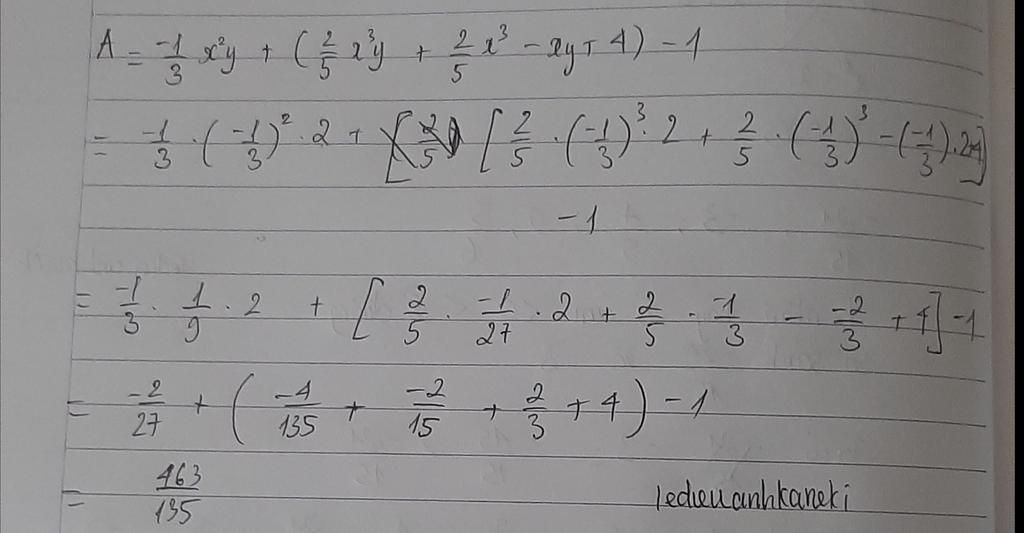 A = -1/3 x²y + (2/5 x³y + 2/5 x³ - xy + 4) - 1
= -1/3 · (-1/3)² · 2 + [2/5 · (-1/3)³ · 2 + 2/5 · (-1/3)³ - (-1/3) · 2+4]
- 1
= -1/3 · 1/9 · 2 + [2/5 · -1/27 · 2 + 2/5 · -1/3 - -2/3 + 4] - 1
= -2/27 + (-4/135 + -2/15 + 2/3 + 4) - 1
= 463/135
ledieuanhkaneki